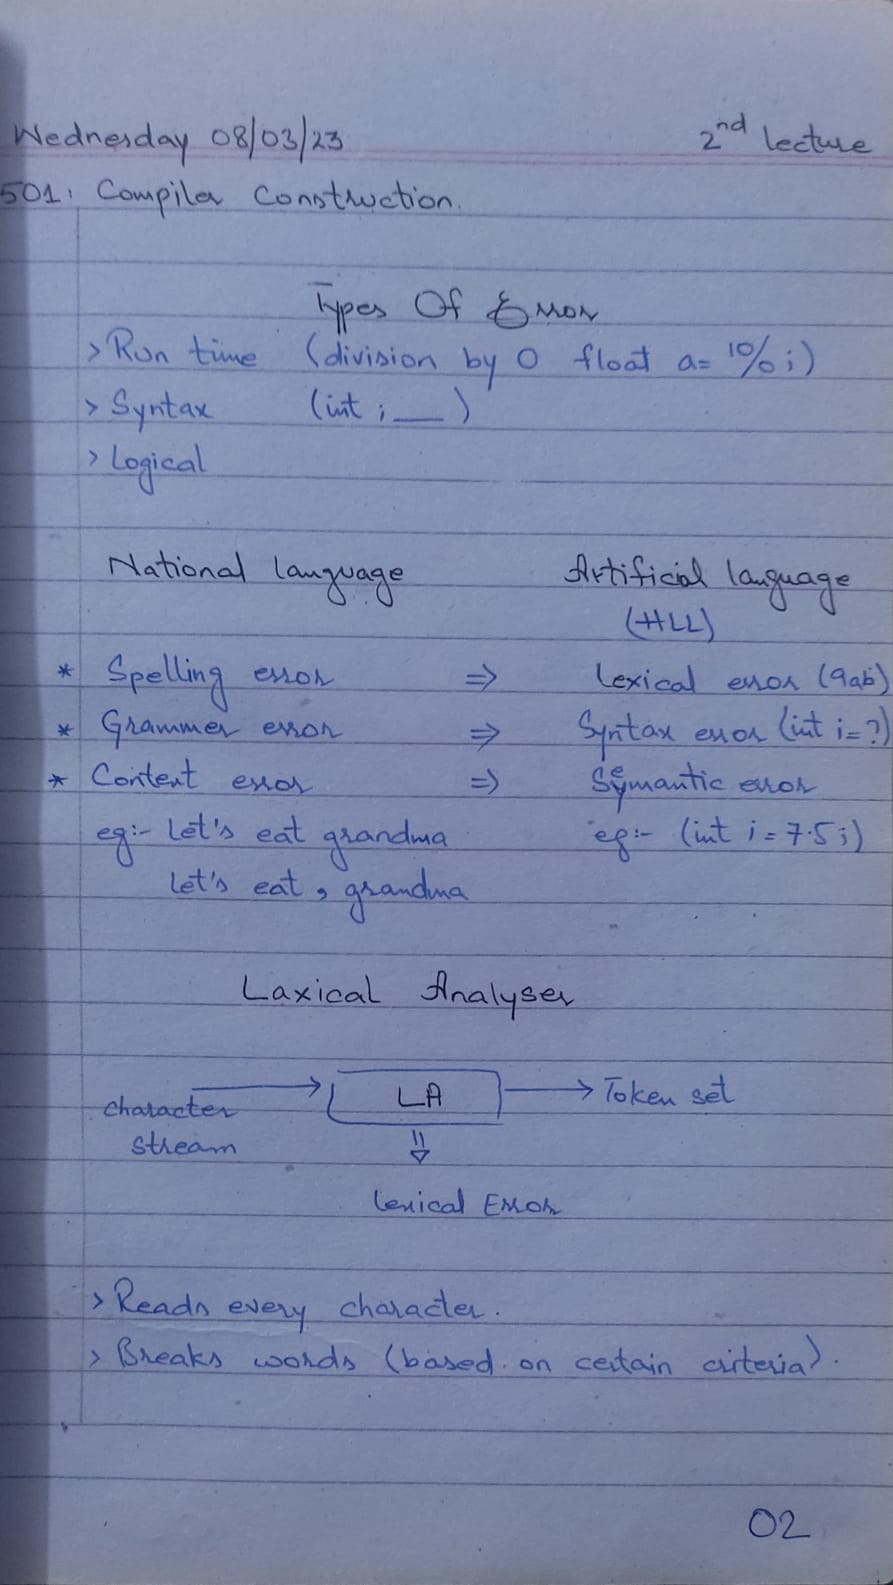 Wednesday 08/03/23 2nd lecture
501: Compiler Construction.
Types Of Error
> Run time (division by 0 float a= 10/0 ;)
> Syntax (int ; __ )
> Logical
National language Artificial language
(HLL)
* Spelling error ⇒ Lexical error (9ab)
* Grammer error ⇒ Syntax error (int i=?)
* Content error ⇒ Semantic error
eg:- Let's eat grandma eg:- (int i = 7.5;)
Let's eat, grandma
Laxical Analyser
character → LA → Token set
stream
⇓
Lexical Error
> Reads every character.
> Breaks words (based on certain criteria).
02